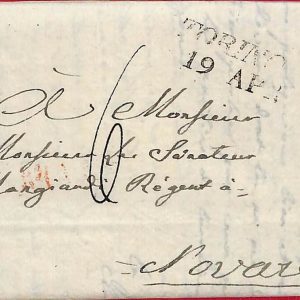 TORINO
19 APR
À Monsieur
Monsieur le Sénateur
Régent à
Novar
6